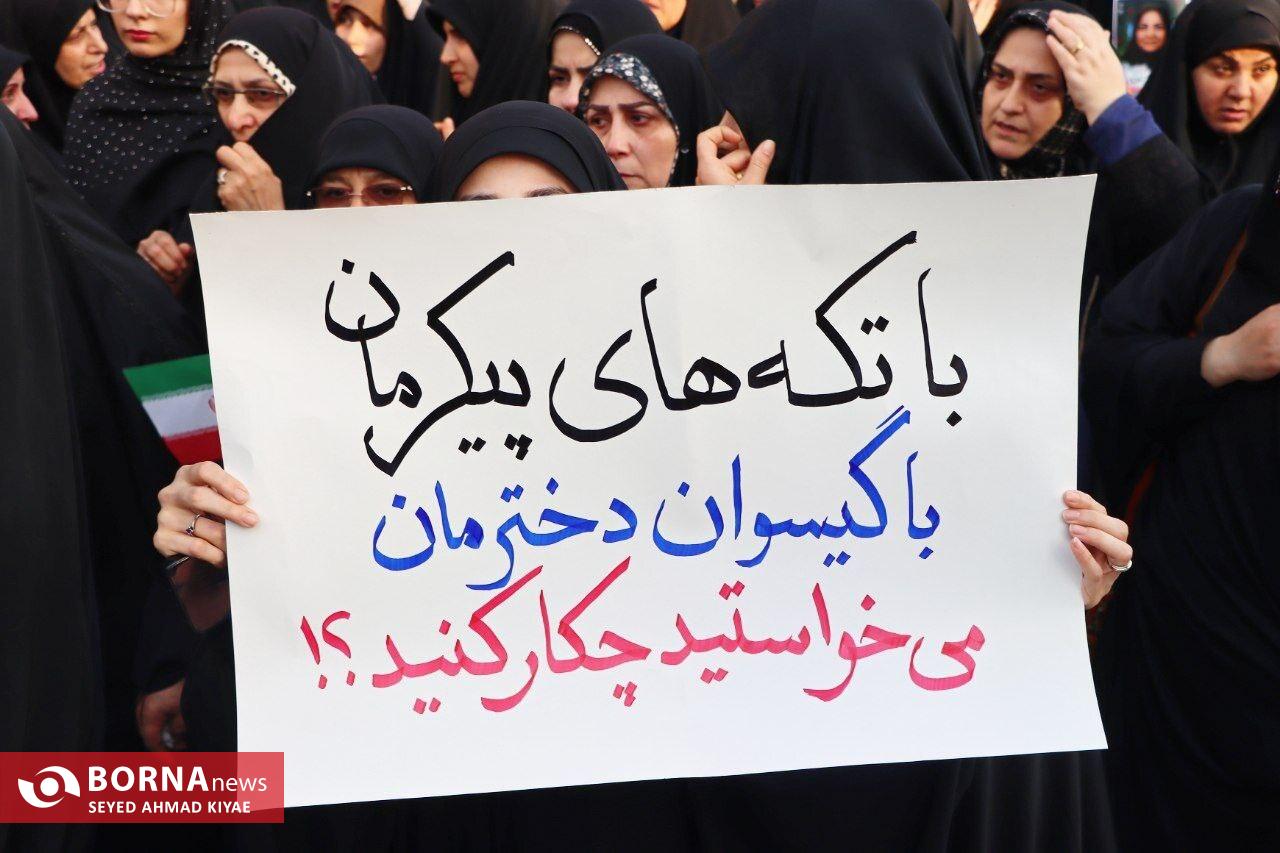 با تکه‌های پیکرمان
با گیسوان دخترمان
می‌خواستید چکار کنید؟!
BORNA news
SEYED AHMAD KIYAE